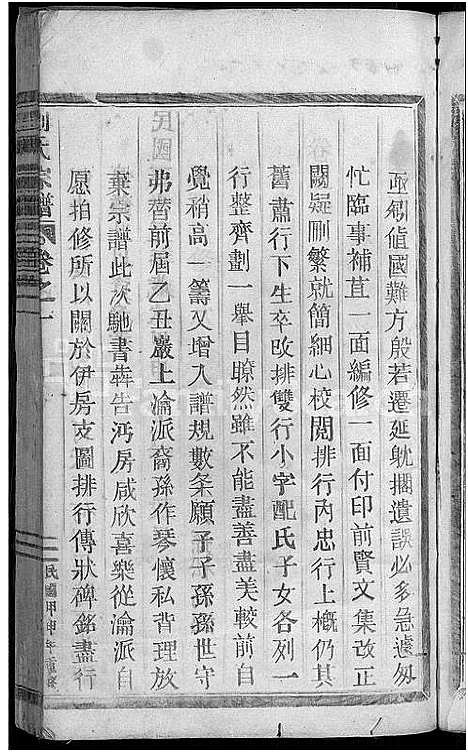 亟刱值國難方殷若遷延躭擱遺誤必多急遽匆
忙臨事補苴一面編修一面付印前賢文集改正
闕疑刪繁就簡細心校閱排行內忠行上概仍其
舊肅行下生卒改排雙行小字配氏子女各列一
行整齊劃一舉目瞭然雖不能盡善盡美較前自
覺稍高一籌又增入譜規數条願子子孫孫世守
弗替前屆乙丑巖上瀹派裔孫作琴懷私背理放
棄宗譜此次馳書犇告沔房咸欣喜樂從瀹派自
愿拍修所以關於伊房支圖排行傳狀碑銘盡行
氏宗譜 卷之一
民國甲申年重修